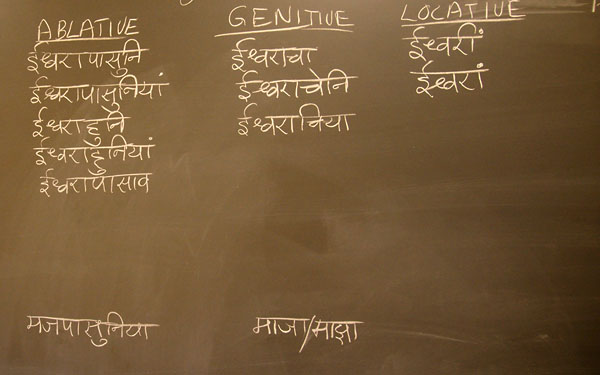 ABLATIVE
ईश्वरापासुनि
ईश्वरापासुनियां
ईश्वराहुनि
ईश्वराहुनियां
ईश्वरापासाव
मजपासुनिया
GENITIVE
ईश्वराचा
ईश्वराचेनि
ईश्वराचिया
माजा/माझा
LOCATIVE
ईश्वरीं
ईश्वरां